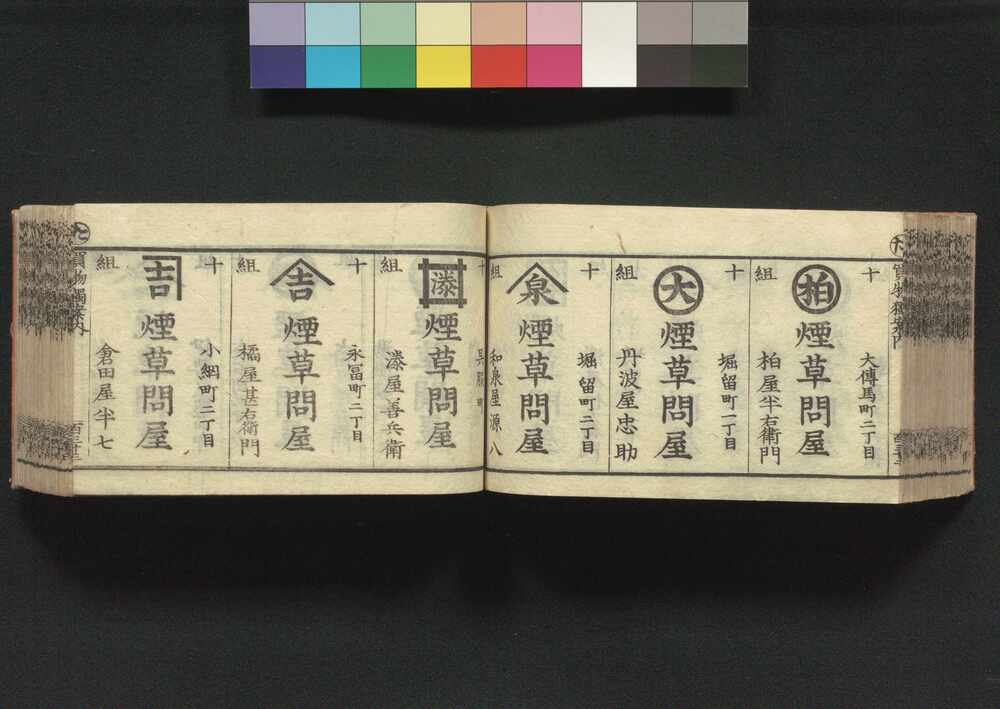 十組
大傳馬町二丁目
柏
煙草問屋
柏屋半右衛門
十組
堀留町一丁目
大
煙草問屋
丹波屋忠助
十組
堀留町二丁目
泉
煙草問屋
和泉屋源八
十組
漆
煙草問屋
漆屋善兵衛
十組
永冨町二丁目
吉
煙草問屋
橘屋甚右衛門
十組
小網町二丁目
吉
煙草問屋
倉田屋半七
買物獨案内